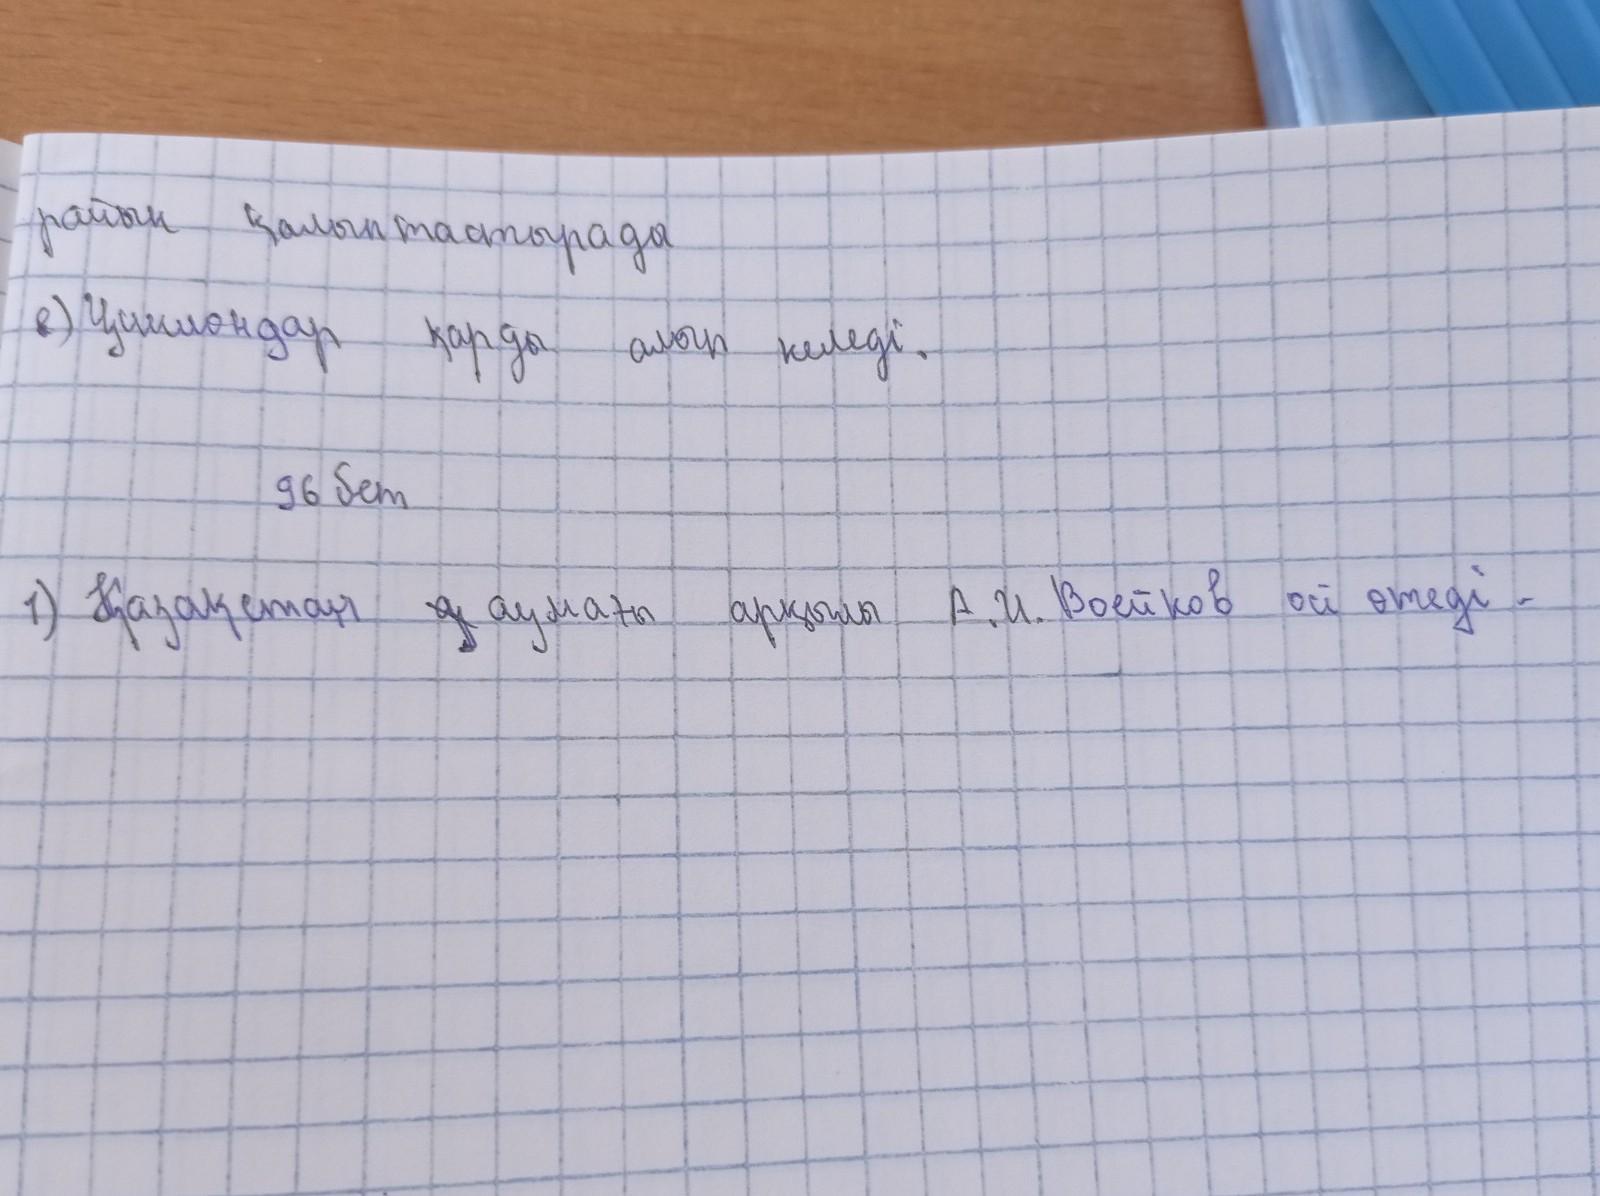 райын қалыптастырады
е) Циклондар қарды алып келеді.
96 бет
1) Қазақстан аумағы арқылы А.И. Воейков осі өтеді -